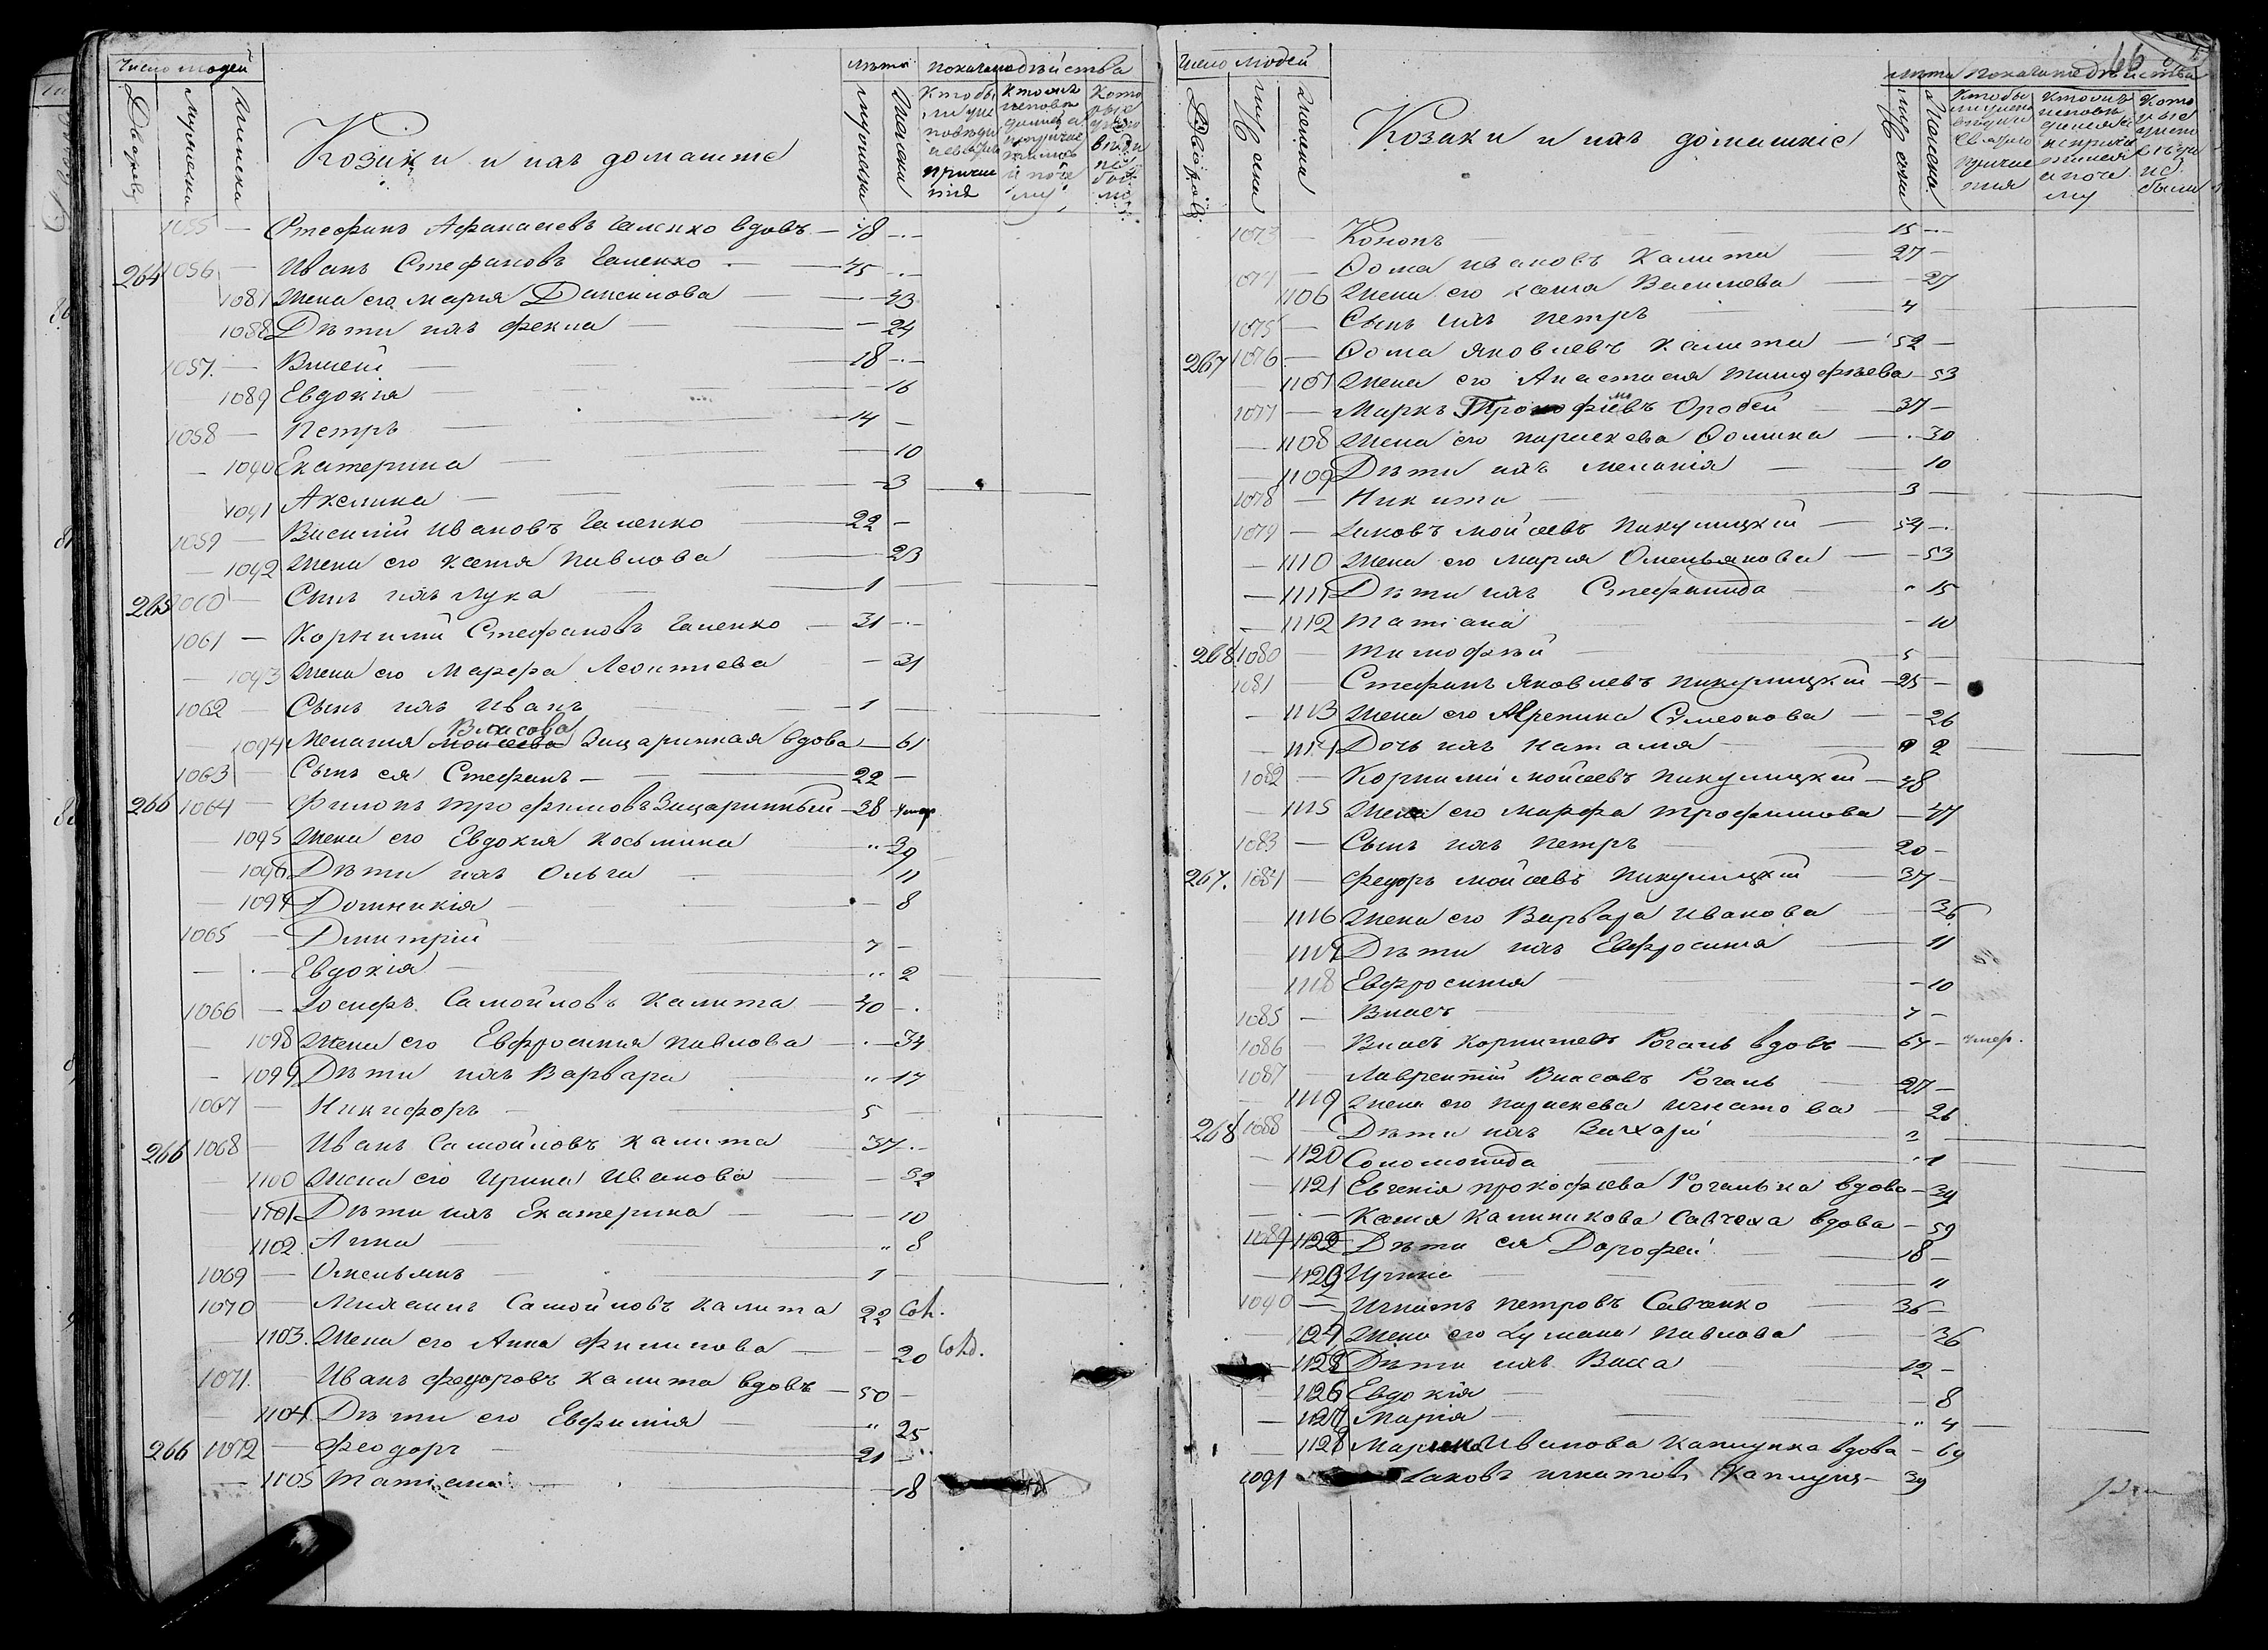 Число людей
Дворовъ
Мужеска
Женска
Козаки и ихъ домашніе
лѣта
мужеска
Женска
показаніе дѣйства
1055 — Стефанъ Афанасіевъ Галенко вдовъ — 78 —
264 1056 — Иванъ Стефановъ Галенко — 45 —
1087 Жена его Марія Данилова — 43
1088 Дѣти ихъ Фекла — 24
1057 — Власій — 18 —
1089 Евдокія — 16
1058 — Петръ — 14 —
1090 Екатерина — 10
1091 Акилина — 3
1059 — Василій Ивановъ Галенко — 22 —
1092 Жена его Ксенія Павлова — 23
265 1060 — Сынъ ихъ Лука — 1
1061 — Корнилій Стефановъ Галенко — 31 —
1093 Жена его Марфа Леонтіева — 31
1062 — Сынъ ихъ Иванъ — 1
Власова
1094 Меланія Мойсеева Зацаринная вдова — 61
1063 — Сынъ ея Стефанъ — 22 —
266 1064 — Филипъ Трофимовъ Зацаринный — 38 умер
1095 Жена его Евдокія Косьмина — 39
1096 Дѣти ихъ Ольга — 11
1097 Домникія — 8
1065 — Димитрій — 7 —
Евдокія — 2
1066 — Іосифъ Самойловъ Калита — 40 —
1098 Жена его Евфросинія Павлова — 34
1099 Дѣти ихъ Варвара — 17
1067 — Никифоръ — 5 —
266 1068 — Иванъ Самойловъ Калита — 37 —
1100 Жена его Ирина Иванова — 32
1101 Дѣти ихъ Екатерина — 10
1102 Анна — 8
1069 — Омельянъ — 1
1070 — Михаилъ Самойловъ Калита 22
1103 Жена его Анна Филипова — 20
1071 — Иванъ Федоровъ Калита вдовъ — 50 —
1104 Дѣти его Евфимія — 25
266 1072 — Феодоръ — 21 —
1105 Татіана — 18
66
Число людей
Дворовъ
Мужеска
Женска
Козаки и ихъ домашніе
лѣта
мужеска
Женска
показаніе дѣйства
1073 — Кононъ — 15 —
1074 — Фома Ивановъ Калита — 27 —
1106 Жена его Ксенія Василіева — 27
1075 — Сынъ ихъ Петръ — 4
267 1076 — Фома Яковлевъ Калита — 52 —
1107 Жена его Анастасія Тимофѣева — 53
1077 — Маркъ Оробей — 37 —
1108 Жена его Параскева Фомина — 30
1109 Дѣти ихъ Меланія — 10
1078 — Никита — 3 —
1079 — Іаковъ Мойсеевъ Пикулицкій — 54 —
1110 Жена его Марія Омельянова — 53
1111 Дѣти ихъ Стефанида — 15
1112 Татіана — 10
268 1080 — Тимофѣй — 5
1081 — Стефанъ Яковлевъ Пикулицкій — 25 —
1113 Жена его Агрепина Симеонова — 26
1114 Дочь ихъ Наталія — 2
1082 — Корнилій Мойсеевъ Пикулицкій — 48
1115 Жена его Марфа Трофимова — 47
1083 — Сынъ ихъ Петръ — 20 —
267. 1084 — Федоръ Мойсеевъ Пикулицкій — 37 —
1116 Жена его Варвара Иванова — 36
1117 Дѣти ихъ Евфросинія — 11
1118 Евфросинія — 10
1085 — Власъ — 7 —
1086 — Власъ Корнилиевъ Рогаль вдовъ — 64 — умер.
1087 — Лаврентій Власовъ Рогаль — 27 —
1119 Жена его Параскева Игнатова — 26
268 1088 — Дѣти ихъ Захарій — 2
1120 Соломонида — 1
1121 Евгенія Прокофіева Рогалька вдова — 34
Ксенія Калиникова Савчека вдова — 59
1089 1122 Дѣти ея Дорофей — 18 —
1123 Ирина — 11
1090 — Игнатъ Петровъ Савченко — 36 —
1124 Жена его Іуліана Павлова — 36
1125 Дѣти ихъ Васса — 12 —
1126 Евдокія — 8
1127 Марія — 4
1128 Марина Иванова Каплунка вдова — 69
1091 Іаковъ Игнатовъ Каплунъ — 39